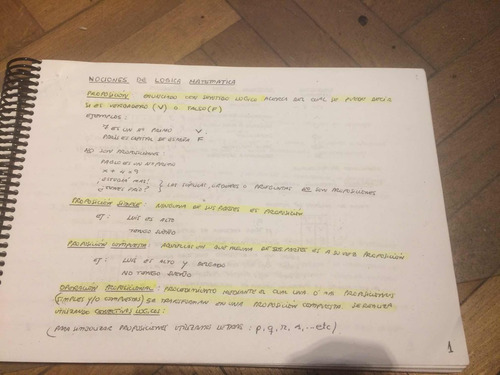 NOCIONES DE LOGICA MATEMATICA
PROPOSICIÓN: ENUNCIADO CON SENTIDO LÓGICO ACERCA DEL CUAL SE PUEDE DECIR
SI ES VERDADERO (V) O FALSO (F)
EJEMPLOS:
7 ES UN Nº PRIMO V
PARÍS ES CAPITAL DE ESPAÑA F
NO SON PROPOSICIONES:
PABLO ES UN Nº PRIMO
x + 4 = 9
¡ESTUDIÁ MÁS! } LAS SÚPLICAS, ÓRDENES O PREGUNTAS NO SON PROPOSICIONES
¿TENÉS PAZ?
PROPOSICIÓN SIMPLE: NINGUNA DE SUS PARTES ES PROPOSICIÓN
EJ: LUIS ES ALTO
TENGO SUEÑO
PROPOSICIÓN COMPUESTA: AQUELLAS EN QUE ALGUNA DE SUS PARTES ES A SU VEZ PROPOSICIÓN
EJ: LUIS ES ALTO Y DELGADO
NO TENGO SUEÑO
OPERACIÓN PROPOSICIONAL: PROCEDIMIENTO MEDIANTE EL CUAL UNA O MÁS PROPOSICIONES
(SIMPLES Y/O COMPUESTAS) SE TRANSFORMAN EN UNA PROPOSICIÓN COMPUESTA. SE REALIZA
UTILIZANDO CONECTIVOS LÓGICOS:
(PARA SIMBOLIZAR PROPOSICIONES UTILIZAMOS LETRAS: p, q, r, s, ...etc)
1